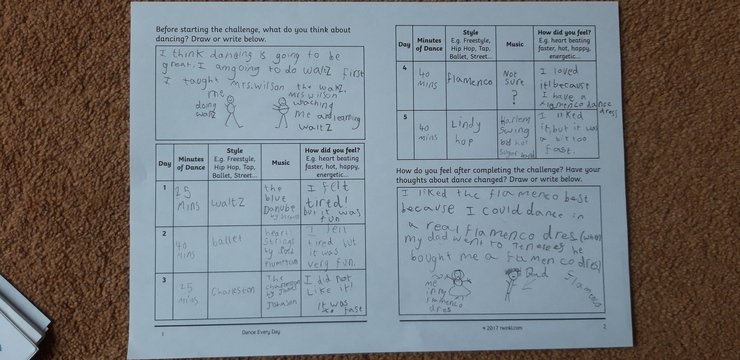 Before starting the challenge, what do you think about
dancing? Draw or write below.
I think dancing is going to be
great. I am going to do waltz first
I taught Mrs.Wilson the waltz.
me
doing
waltz
Mrs Wilson
waching
me and learning
waltz
Day
Minutes
of Dance
Style
E.g. Freestyle,
Hip Hop, Tap,
Ballet, Street...
Music
How did you feel?
E.g. heart beating
faster, hot, happy,
energetic...
1
25
Mins
waltz
the
blue
Danube
I felt
tired!
but it was
fun
2
40
mins
ballet
heart
strings
by
I felt
tired but
it was
very fun.
3
25
mins
Charleston
The
charleston
by
Johnson
I did not
Like it!
It was
too fast
1
Dance Every Day
Day
Minutes
of Dance
Style
E.g. Freestyle,
Hip Hop, Tap,
Ballet, Street...
Music
How did you feel?
E.g. heart beating
faster, hot, happy,
energetic...
4
40
mins
flamenco
Not
sure
?
I loved
it! because
I have a
flamenco dance
dress
5
40
mins
Lindy
hop
Harlem
Swing
I liked
it, but it was
a bit too
fast.
How do you feel after completing the challenge? Have your
thoughts about dance changed? Draw or write below.
I liked the flamenco best
because I could dance in
a real flamenco dres (when
my dad went to Tenereef he
bought me a flamenco dres)
me
in my
flamenco
dres
Dad
flamenco
© 2017 twinkl.com
2